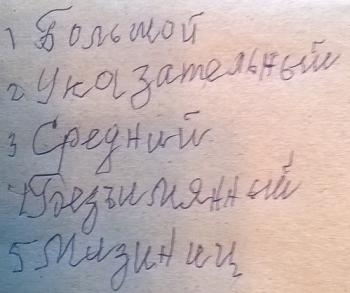 1 Большой
2 Указательный
3 Средний
4 Безымянный
5 Мизинец